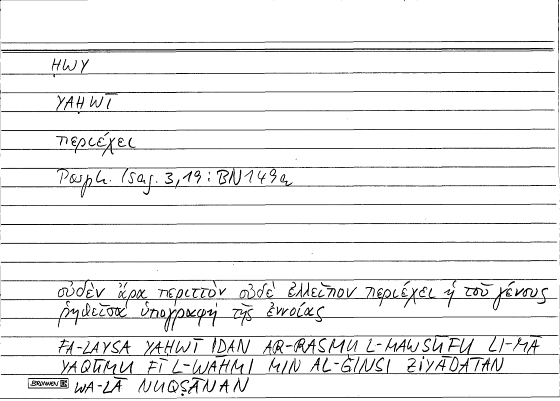 ḤWY
YAḤWĪ
περιέχει
Porph. Isag. 3,19 : BN 149a
οὐδὲν ἄρα περιττὸν οὐδὲ ἐλλεῖπον περιέχει ἡ τοῦ γένους
ῥηθεῖσα ὑπογραφὴ τῆς ἐννοίας
FA-LAYSA YAḤWĪ IḎAN AR-RASMU L-MAWṢŪFU LI-MĀ
YAQŪMU FĪ L-WAHMI MIN AL-ǦINSI ZIYĀDATAN
BRUNNEN WA-LĀ NUQṢĀNAN